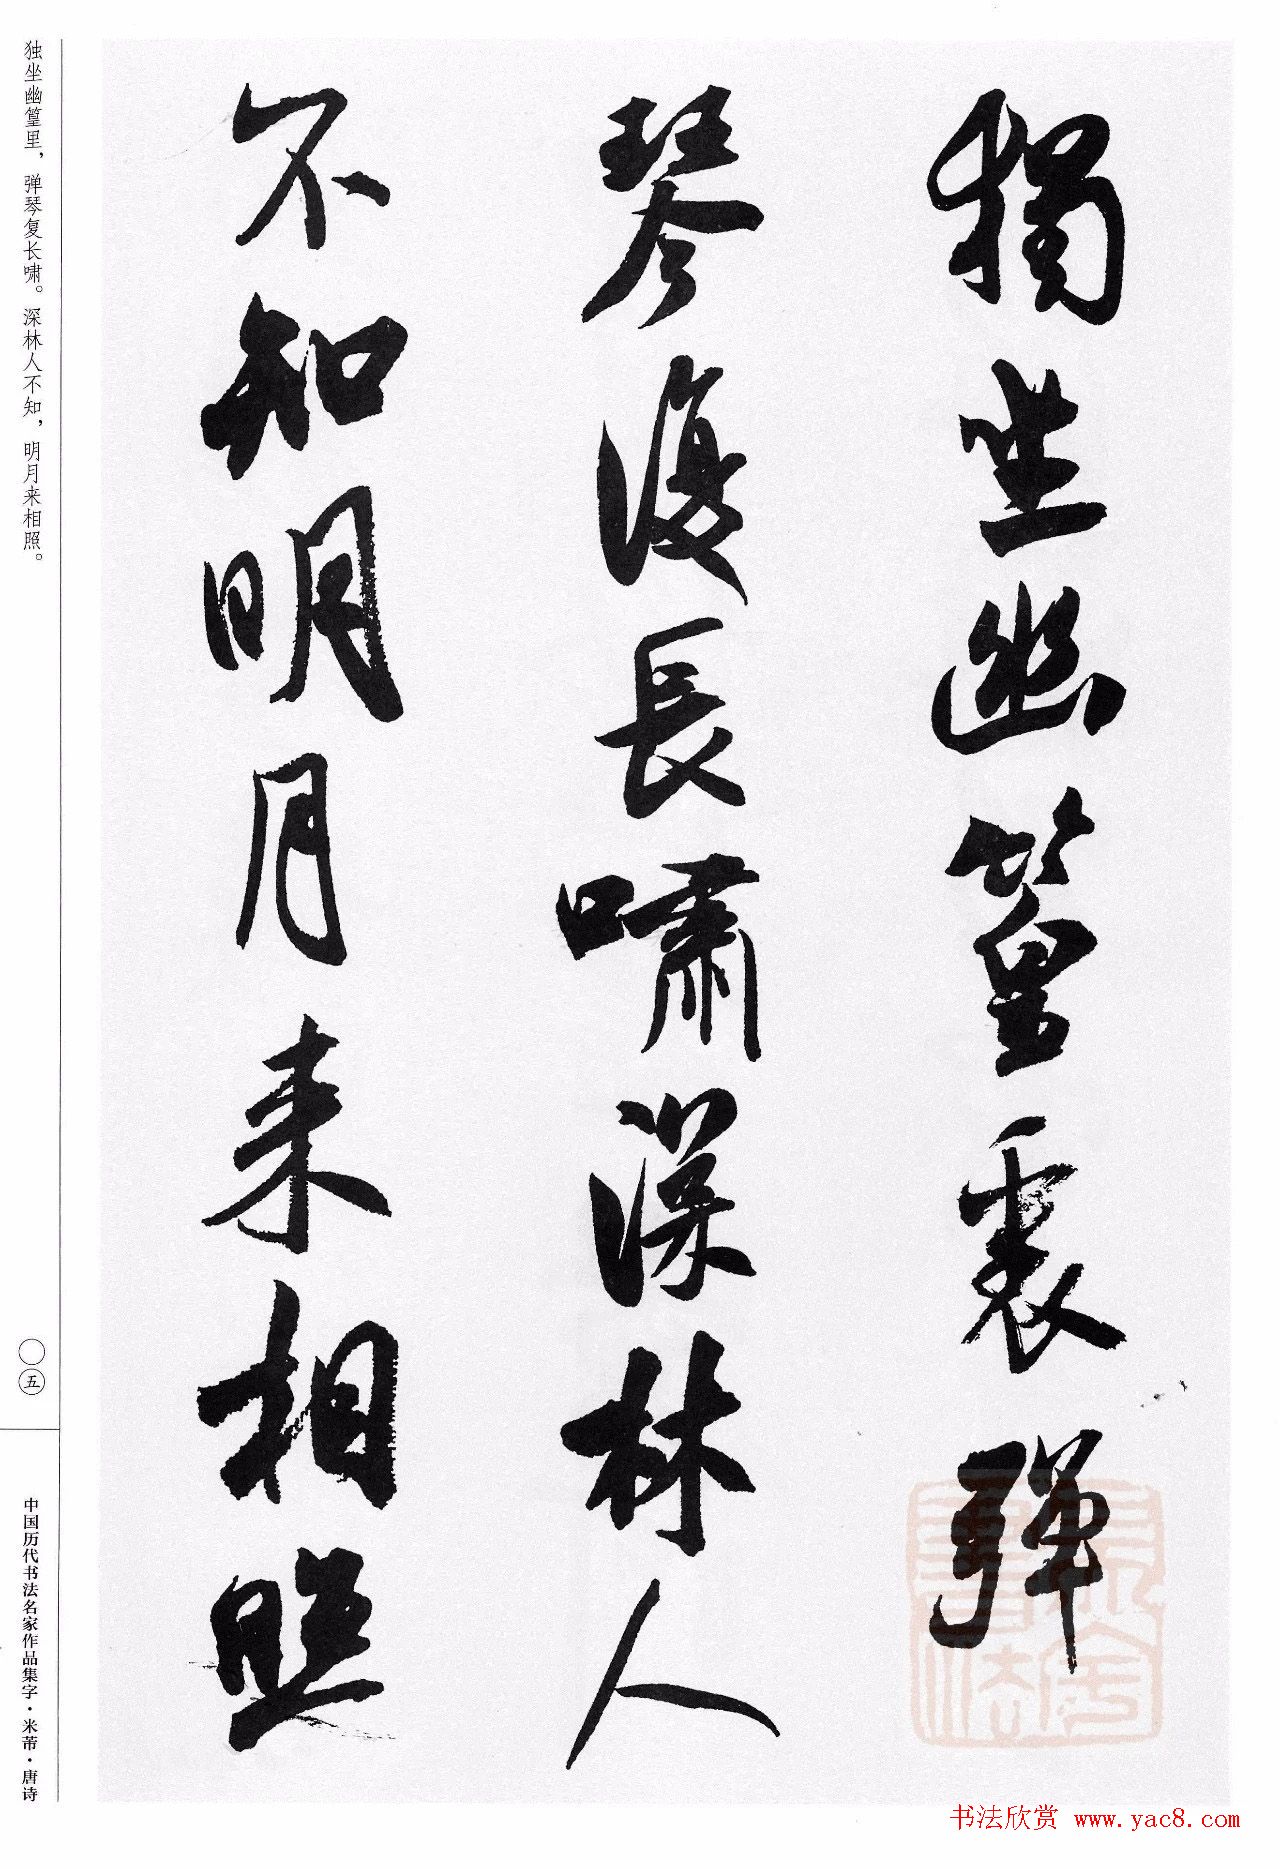 獨坐幽篁裏彈
琴復長嘯深林人
不知明月来相照
独坐幽篁里，弹琴复长啸。深林人不知，明月来相照。
〇五
中国历代书法名家作品集字·米芾·唐诗
书法欣赏 www.yac8.com